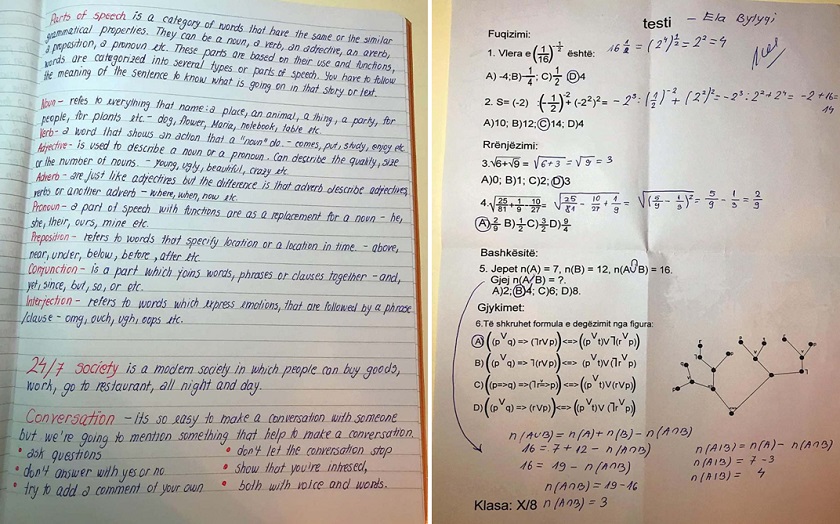 Parts of speech is a category of words that have the same or the similar
grammatical properties. They can be a noun, a verb, an adjective, an averb,
a preposition, a pronoun etc. These parts are based on their use and functions,
words are categorized into several types or parts of speech. You have to follow
the meaning of the sentence to know what is going on in that story or text.
Noun - refes to everything that name: a place, an animal, a thing, a party, for
people, for plants etc. - dog, flower, Maria, notebook, table etc.
Verb - a word that shows an action that a "noun" do. - comes, put, study, enjoy etc.
Adjective - is used to describe a noun or a pronoun. Can describe the quality, size
or the number of nouns. - young, ugly, beautiful, crazy etc.
Adverb - are just like adjectives but the difference is that adverb describe adjectives,
verbs or another adverb - where, when, now etc.
Pronoun - a part of speech with functions are as a replacement for a noun - he,
she, their, ours, mine etc.
Preposition - refers to words that specify location or a location in time. - above,
near, under, below, before, after etc.
Conjunction - is a part which joins words, phrases or clauses together - and,
yet, since, but, so, or etc.
Interjection - refers to words which express emotions, that are followed by a phrase
/clause - omg, ouch, ugh, oops etc.
24/7 society is a modern society in which people can buy goods,
work, go to restaurant, all night and day.
Conversation - Its so easy to make a conversation with someone
but we're going to mention something that help to make a conversation.
• ask questions
• don't answer with yes or no
• try to add a comment of your own
• don't let the conversation stop
• show that you're intresed,
• both with voice and words.
testi - Ela Bytyqi
Fuqizimi:
1. Vlera e (1/16)^-1/2 është: 16^1/2 = (2⁴)^1/2 = 2² = 4
A) -4; B) 1/4; C) 1/2 D) 4
2. S= (-2) (-1/2)^-2 + (-2²)²= -2³ · (1/2)^-2 + (2²)² = -2³ · 2² + 2⁴ = -2 + 16 =
14
A)10; B)12; C)14; D)4
Rrënjëzimi:
3. √6+√9 = √6+3 = √9 = 3
A)0; B)1; C)2; D)3
4. √25/81 + 1/9 - 10/27 = √25/81 - 10/27 + 1/9 = √(5/9 - 1/3)² = 5/9 - 1/3 = 2/9
A) 2/9 B) 1/2 C) 3/2 D) 9/4
Bashkësitë:
5. Jepet n(A) = 7, n(B) = 12, n(A∪B) = 16.
Gjej n(A/B) = ?
A)2; B)4; C)6; D)8.
Gjykimet:
6.Të shkruhet formula e degëzimit nga figura:
A) ((p∨q) => (⅂r∨p)) <=> ((p∨t)∨⅂(r∨p))
B) ((p∨q) => ⅂(r∨p)) <=> ((p∨t)∨(⅂r∨p))
C) ((p=>q) => (⅂r=>p)) <=> ((p∨t)∨(r∨p))
D) ((p∨q) => (r∨p)) <=> ((p∨t)∨(⅂r∨p))
n(A∪B) = n(A) + n(B) - n(A∩B)
16 = 7 + 12 - n(A∩B)
16 = 19 - n(A∩B)
n(A∩B) = 19-16
n(A∩B) = 3
n(A|B) = n(A) - n(A∩B)
n(A|B) = 7 - 3
n(A|B) = 4
Klasa: X/8